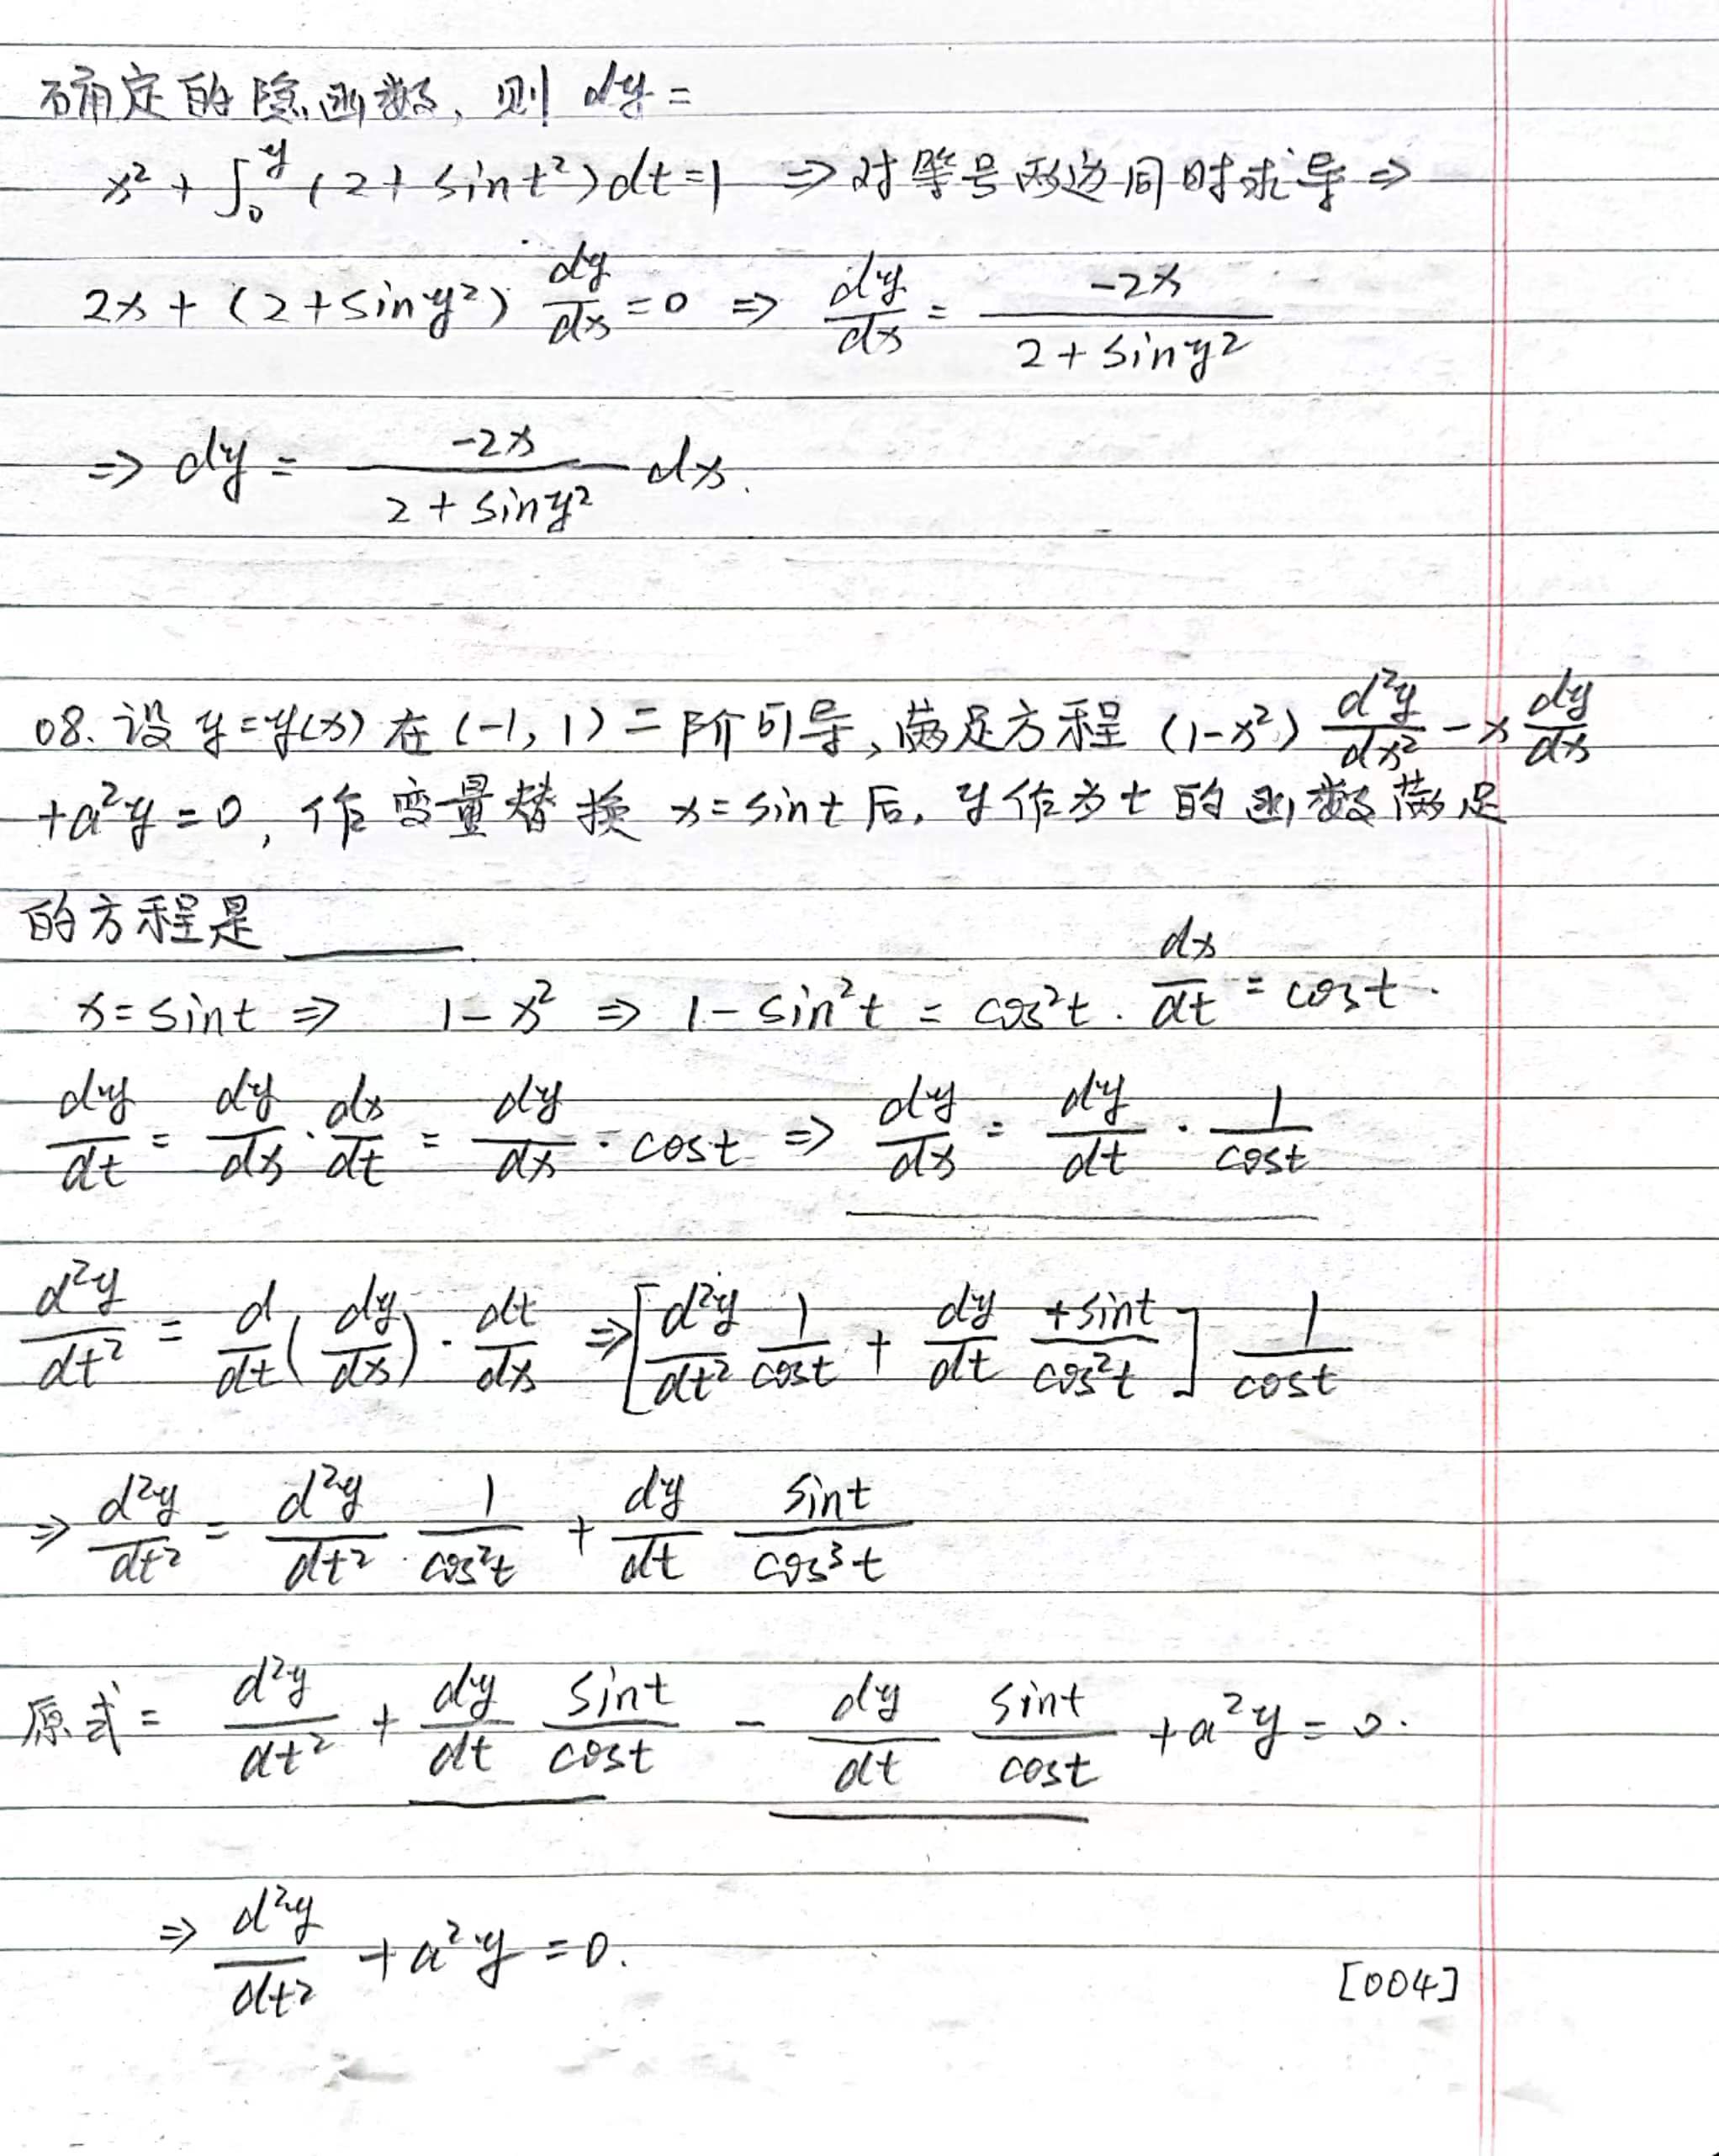 确定的隐函数, 则 dy =
x² + ∫₀^y (2 + sint²)dt = 1 ⇒ 对等号两边同时求导 ⇒
2x + (2 + siny²) dy/dx = 0 ⇒ dy/dx = -2x/(2 + siny²)
⇒ dy = -2x/(2 + siny²) dx.
08. 设 y = y(x) 在 (-1, 1) 二阶可导, 满足方程 (1-x²) d²y/dx² - x dy/dx
+a²y = 0, 作变量替换 x = sint 后, y作为t的函数满足
的方程是 ______.
x = sint ⇒ 1 - x² ⇒ 1 - sin²t = cos²t. dx/dt = cost.
dy/dt = dy/dx · dx/dt = dy/dx · cost ⇒ dy/dx = dy/dt · 1/cost
d²y/dt² = d/dt(dy/dx) · dt/dx ⇒ [d²y/dt² 1/cost + dy/dt +sint/cos²t] 1/cost
⇒ d²y/dt² = d²y/dt² · 1/cos²t + dy/dt sint/cos³t
原式 = d²y/dt² + dy/dt sint/cost - dy/dt sint/cost + a²y = 0.
⇒ d²y/dt² + a²y = 0.
[004]